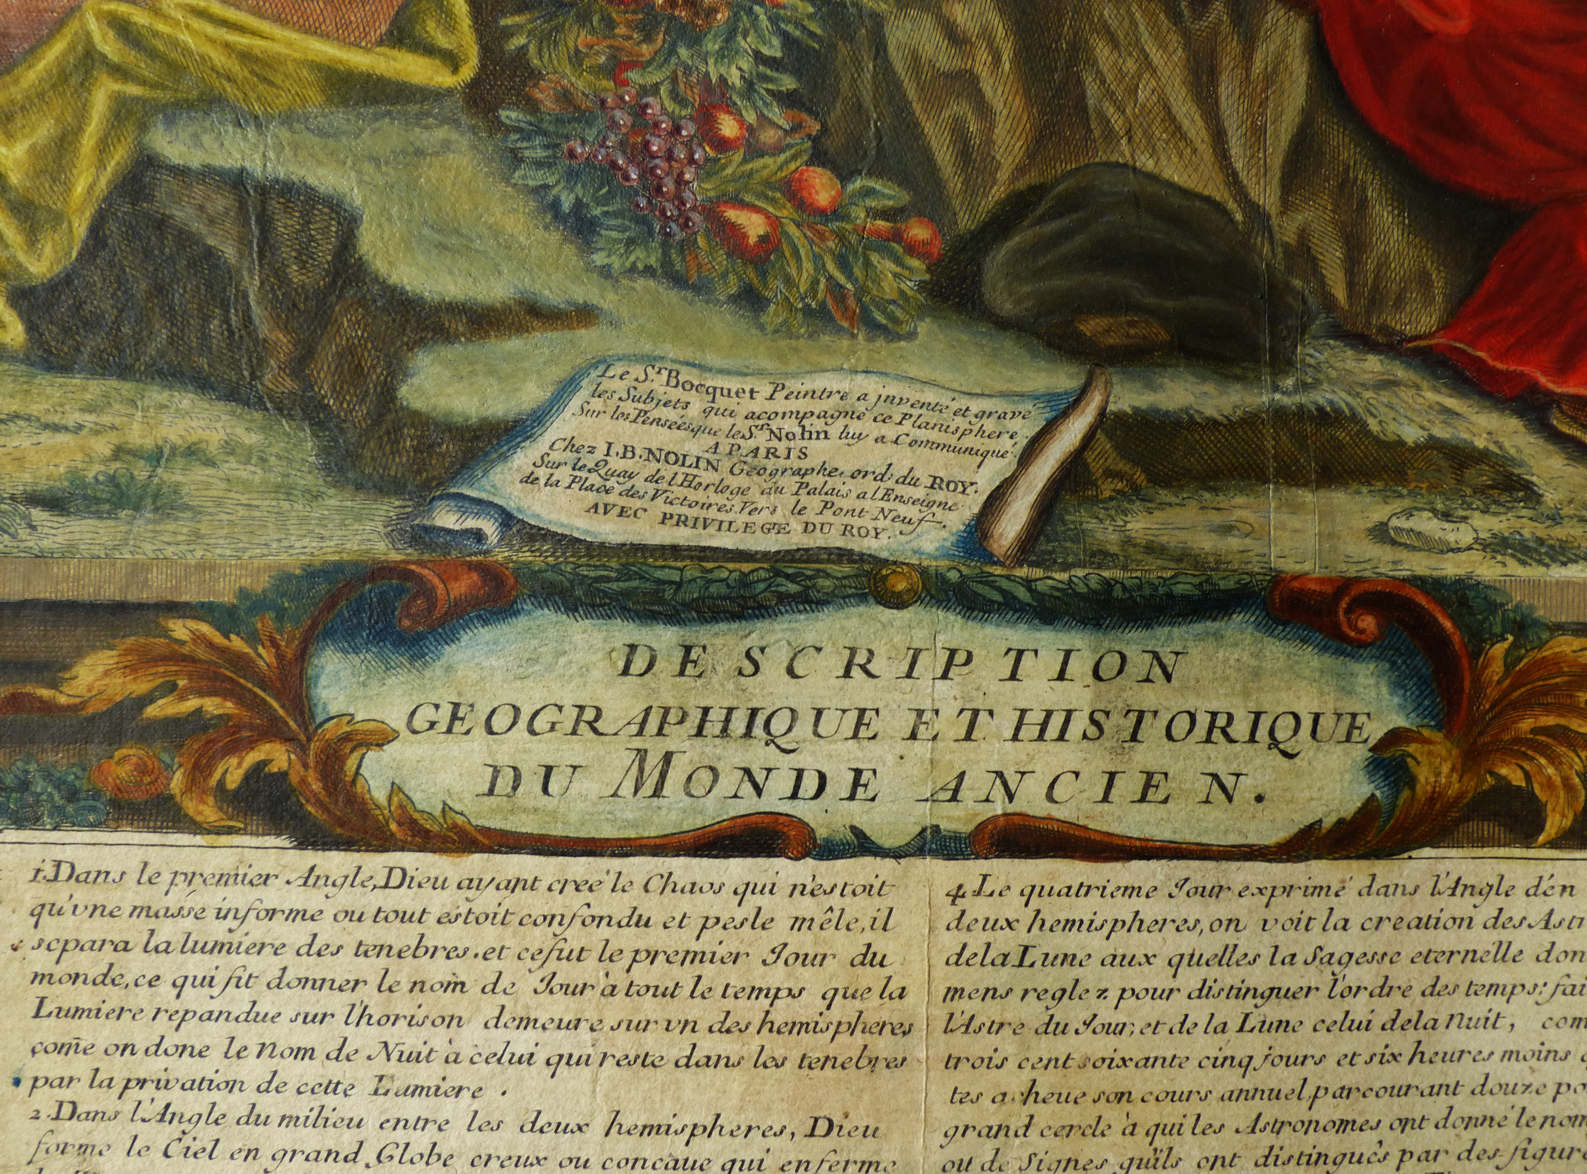 Le S.r Bocquet Peintre a jnventé et gravé
les Subjets qui acompagne ce Planisphere.
Sur les Penseés que le S.r Nolin luy a Communiqué.
A PARIS
Chez I.B. NOLIN Geographe. ord: du ROY.
Sur le Quay de l'Horloge du Palais a l'Enseigne
de la Place des Victoires Vers le Pont Neuf.
AVEC PRIVILEGE DU ROY.
DESCRIPTION
GEOGRAPHIQUE ET HISTORIQUE
DU MONDE ANCIEN.
1. Dans le premier Angle, Dieu ayant creé le Chaos qui n'estoit
qu'vne masse informe ou tout estoit confondu et pesle mêle, il
separa la lumiere des tenebres. et ce fut le premier Jour du
monde, ce qui fit donner le nom de Jour à tout le temps que la
Lumiere repandue sur l'horison demeure sur vn des hemispheres
come on done le Nom de Nuit à celui qui reste dans les tenebres
par la privation de cette Lumiere .
2. Dans l'Angle du milieu entre les deux hemispheres, Dieu
forme le Ciel en grand Globe creux ou concaue qui enferme
4. Le quatrieme Jour exprimé dans l'Angle d'en
deux hemispheres, on voit la creation des Astr
de la Lune aux quelles la Sagesse eternelle don
mens reglez pour distinguer l'ordre des temps: fai
l'Astre du Jour; et de la Lune celui de la Nuit, com
trois cent soixante cinq jours et six heures moins
tes acheue son cours annuel, parcourant douze po
grand cercle à qui les Astronomes ont donné le nom
ou de Signes qu'ils ont distingués par des figur